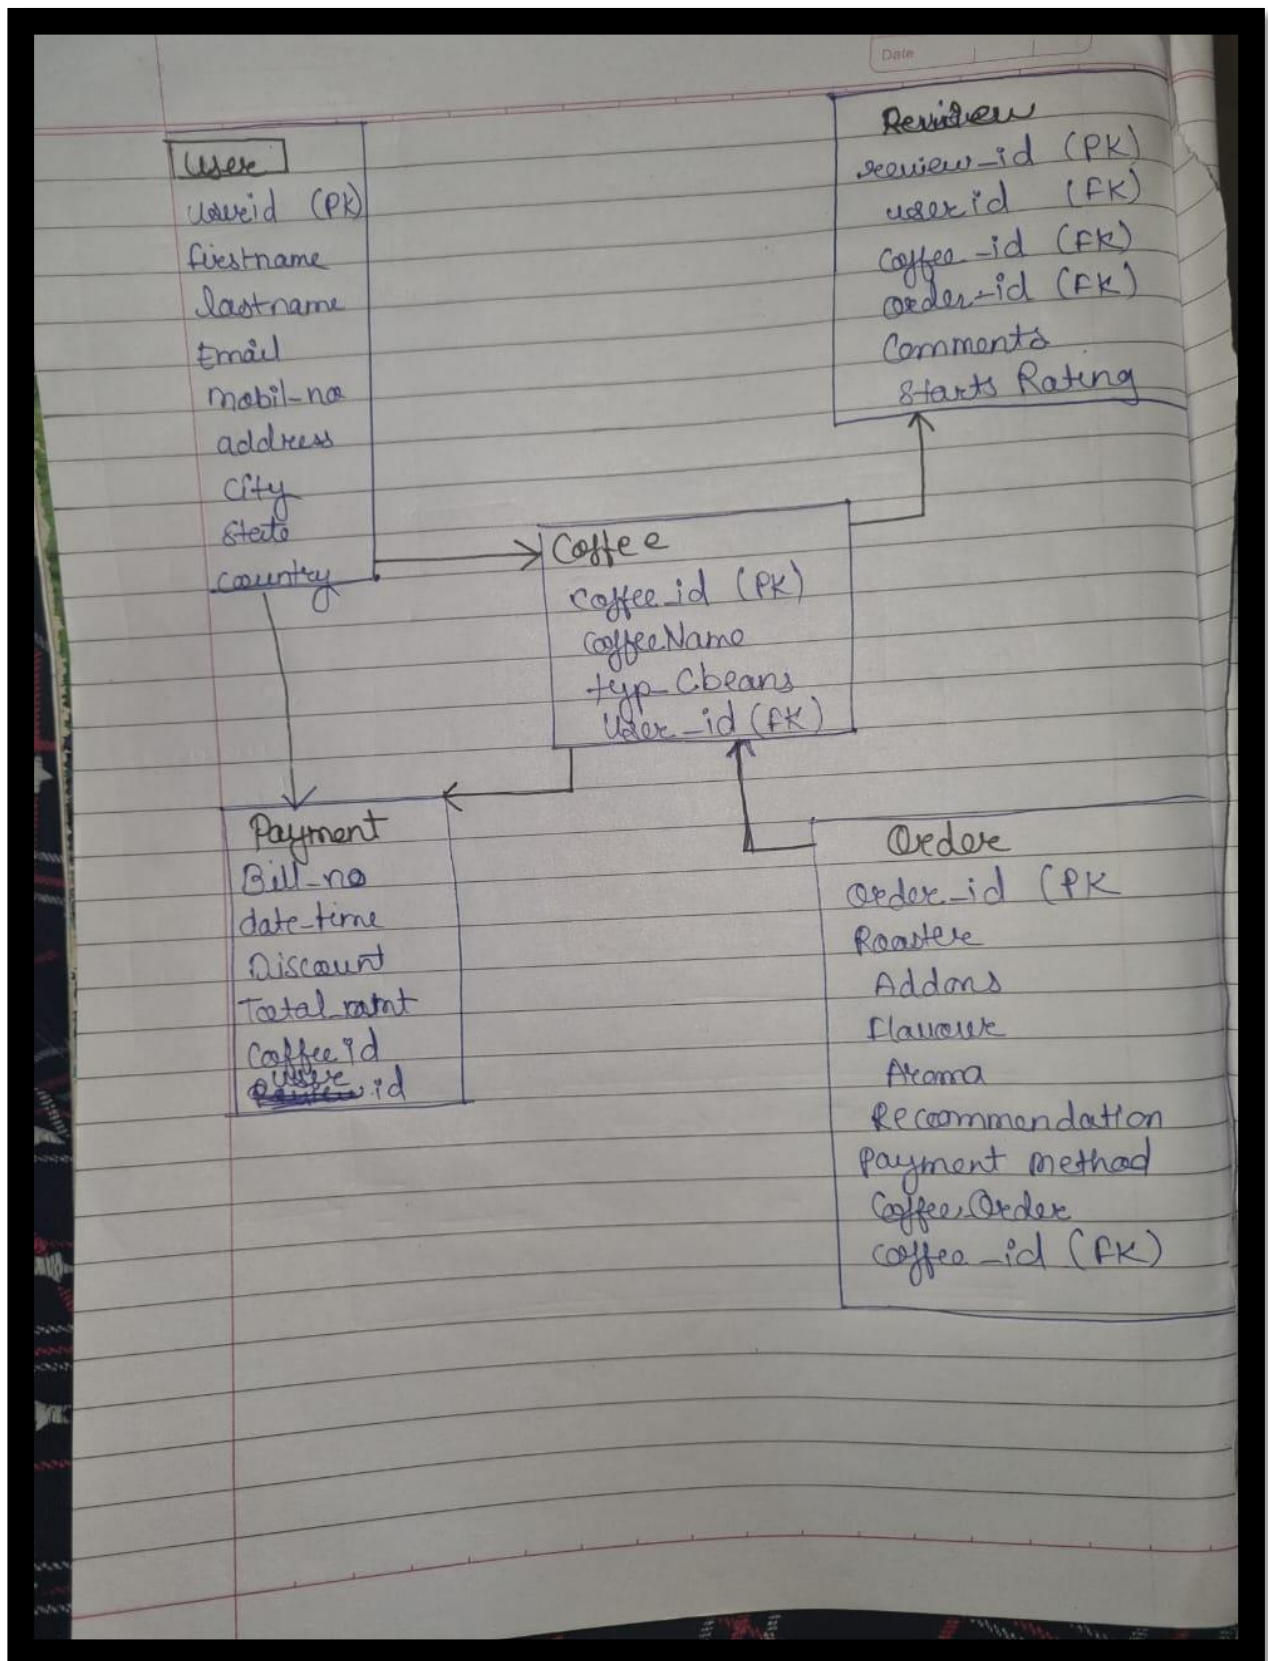 Date
User
userid (PK)
firstname
lastname
Email
mobil-no
address
City
State
country
Review
review-id (PK)
userid (FK)
coffee-id (FK)
order-id (FK)
Comments
Starts Rating
Coffee
coffee-id (PK)
coffeeName
typ-Cbeans
User-id (FK)
Payment
Bill-no
date-time
Discount
Total-amt
Coffee id
user id
Order
order-id (PK
Roaster
Addons
flavour
Aroma
Recommendation
payment method
Coffee Order
coffee-id (FK)